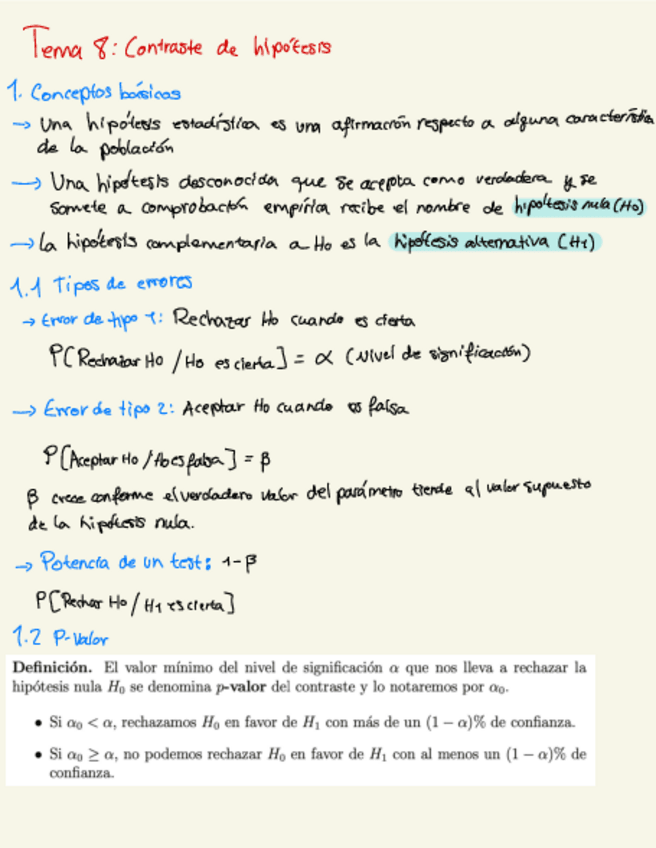 Tema 8: Contraste de hipótesis
1. Conceptos básicos
→ Una hipótesis estadística es una afirmación respecto a alguna característica
de la población
→ Una hipótesis desconocida que se acepta como verdadera y se
somete a comprobación empírica recibe el nombre de hipótesis nula (H0)
→ La hipótesis complementaria a H0 es la hipótesis alternativa (H1)
1.1 Tipos de errores
→ Error de tipo 1: Rechazar H0 cuando es cierta
P[Rechazar H0 / H0 es cierta] = α (Nivel de significación)
→ Error de tipo 2: Aceptar H0 cuando es falsa
P[Aceptar H0 / H0 es falsa] = β
β crece conforme el verdadero valor del parámetro tiende al valor supuesto
de la hipótesis nula.
→ Potencia de un test: 1-β
P[Rechar H0 / H1 es cierta]
1.2 P-Valor
Definición. El valor mínimo del nivel de significación α que nos lleva a rechazar la
hipótesis nula H₀ se denomina p-valor del contraste y lo notaremos por α₀.
• Si α₀ < α, rechazamos H₀ en favor de H₁ con más de un (1 − α)% de confianza.
• Si α₀ ≥ α, no podemos rechazar H₀ en favor de H₁ con al menos un (1 − α)% de
confianza.